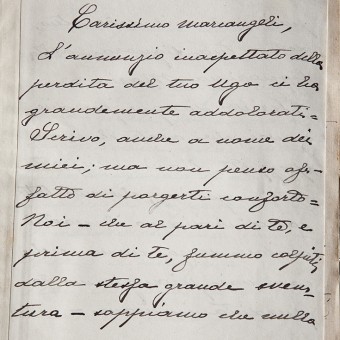 Carissimo Mariangeli,
L'annunzio inaspettato della
perdita del tuo Ugo ci ha
grandemente addolorati=
Scrivo, anche a nome dei
miei; ma non penso af-
fatto di porgerti conforto=
Noi - che al pari di te, e
prima di te, fummo colpiti,
dalla stessa grande sven-
tura - sappiamo che nulla